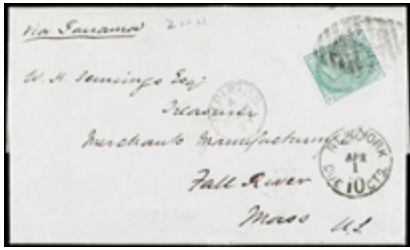 via Panama
W. H. Jennings Esq
Treasurer
Merchants Manufacturing
Fall River
Mass U.S.
NEW YORK
APR
1
DUE 10 CTS.